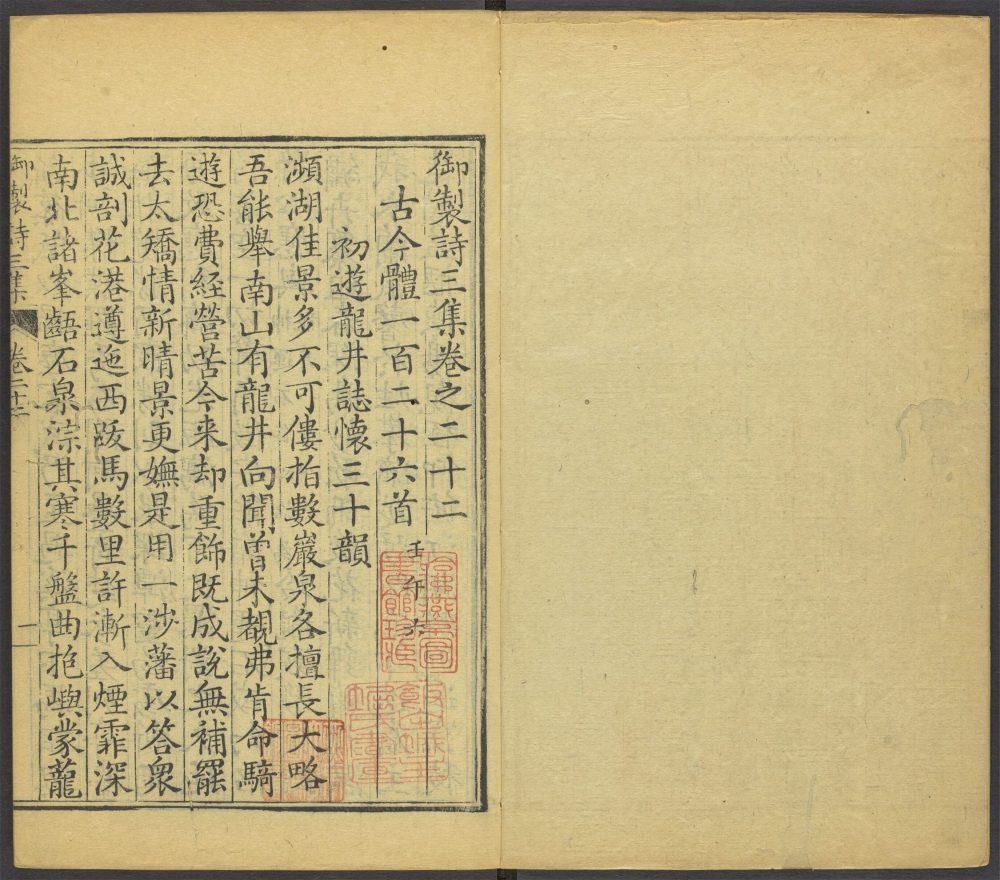 御製詩三集卷之二十二
古今體一百二十六首 壬午六
初遊龍井誌懷三十韻
瀕湖佳景多不可僂指數巖泉各擅長大略
吾能舉南山有龍井向聞曾未覩弗肯命騎
遊恐費經營苦今来却重飾既成說無補罷
去太矯情新晴景更嫵是用一涉藩以答衆
誠剖花港遵迤西跋馬數里許漸入煙霏深
南北諸峯齬石泉淙其寒千盤曲抱嶼蒙蘢
御製詩三集 卷二十二 一